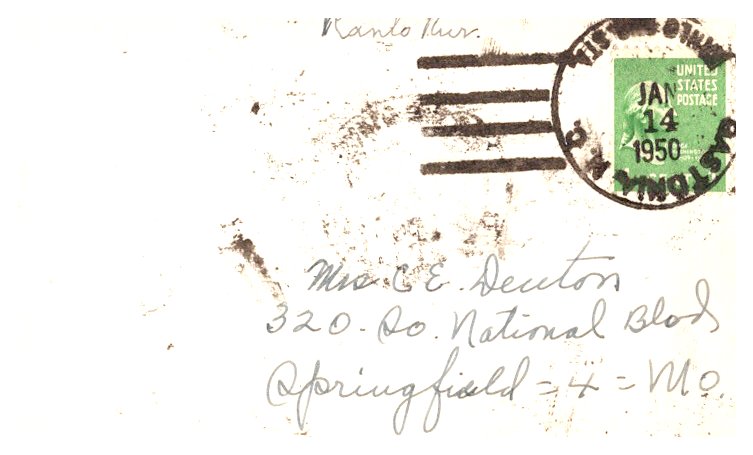 Mrs C. E. Denton
320 - So. National Blvd
Springfield = 4 = Mo.
UNITED
STATES
POSTAGE
JAN
14
1950
GASTONIA N. C.